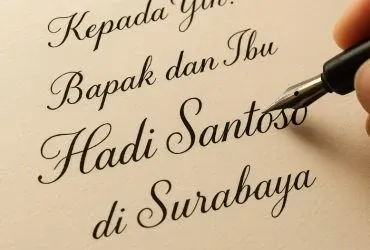 Kepada Yth.
Bapak dan Ibu
Hadi Santoso
di Surabaya